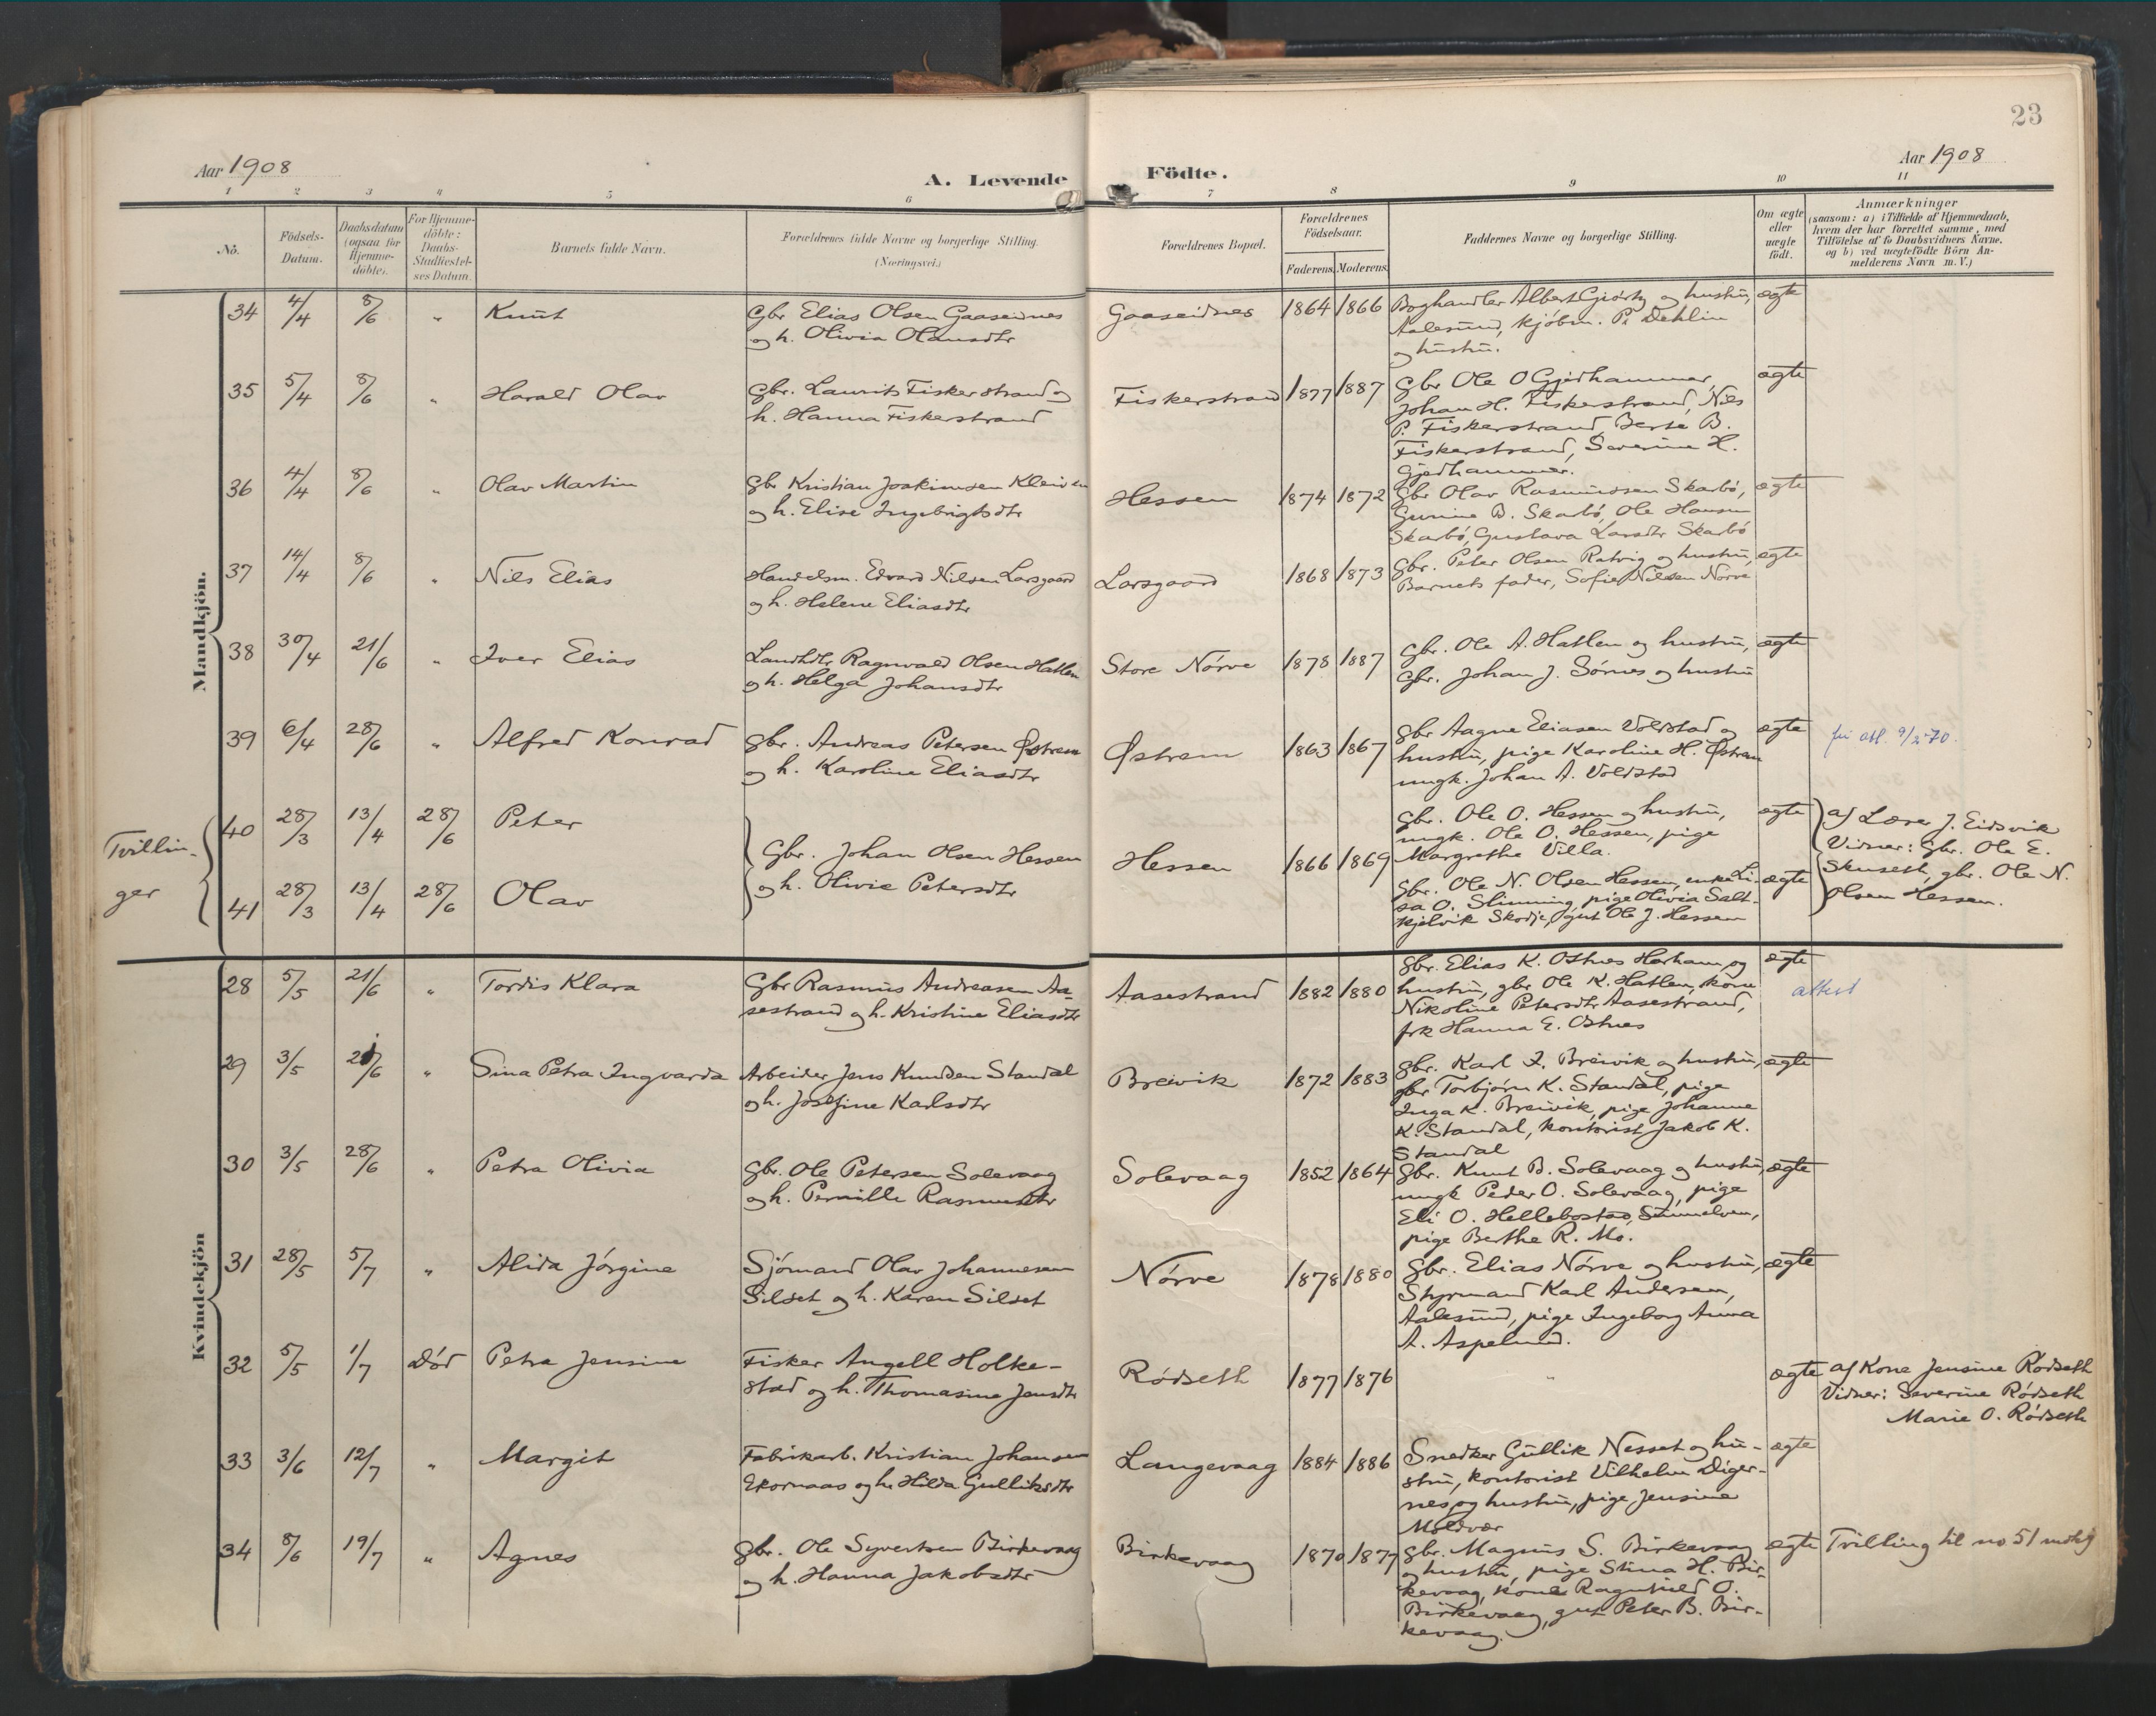 23
Aar 1908
A. Levende Födte.
Aar 1908
1 2 3 4 5 6 7 8 9 10 11
No.
Födsels-
Datum.
Daabsdatum
(ogsaa for
Hjemme-
döbte).
For Hjemme-
döbte:
Daabs-
Stadfæstel-
ses Datum.
Barnets fulde Navn.
Forældrenes fulde Navne og borgerlige Stilling.
(Næringsvei.)
Forældrenes Bopæl.
Forældrenes
Födselsaar.
Faderens. Moderens.
Faddernes Navne og borgerlige Stilling.
Om ægte
eller
uægte
födt.
Anmærkninger
(saasom: a) i Tilfælde af Hjemmedaab,
hvem der har forrettet samme, med
Tilföielse af to Daabsvidners Navne,
og b) ved uægtefödte Börn An-
melderens Navn m. V.)
Mandkjön.
34 4/4 8/6 " Knut
Gbr Elias Olsen Gaaseidnes
og h. Olivia Olausdtr
Gaaseidnes 1864 1866
Boghandler Albert Gjörtz og hustru,
Aalesund, kjöbm. P. Dehlin
og hustru.
ægte
35 5/4 8/6 " Harald Olav
Gbr. Laurits Fiskerstrand og
h. Hanna Fiskerstrand
Fiskerstrand 1877 1887
Gbr Ole O Gjedhammer,
Johan H. Fiskerstrand, Nils
P. Fiskerstrand, Berte B.
Fiskerstrand, Severine H.
Gjedhammer.
ægte
36 4/4 8/6 " Olav Martin
Gbr Kristian Joakimsen Kleiven
og h. Elise Ingebrigtsdtr
Hessen 1874 1872
Gbr Olav Rasmussen Skarbö,
Gurine B. Skarbö, Ole Hansen
Skarbö, Gustava Larsdtr Skarbö
ægte
37 14/4 8/6 " Nils Elias
Handelsm. Edvard Nilsen Larsgaard
og h. Helene Eliasdtr
Larsgaard 1868 1873
Gbr. Peter Olsen Ratvig og hustru,
Barnets fader, Sofie Nilsen Nörve
ægte
38 30/4 21/6 " Iver Elias
Landhdlr Ragnvald Olsen Hatlen
og h. Helga Johansdtr
Store Nörve 1878 1887
Gbr. Ole A. Hatlen og hustru,
Gbr. Johan J. Sörnes og hustru
ægte
39 6/4 28/6 " Alfred Konrad
Gbr. Andreas Petersen Østrem
og h. Karoline Eliasdtr
Østrem 1863 1867
Gbr Aagne Eliasen Voldstad og
hustru, pige Karoline H. Østrem
ungk. Johan A. Voldstad
ægte
att. 9/2-70.
Tvillin-
ger
40 28/3 13/4 28/6 Peter
41 28/3 13/4 28/6 Olav
Gbr. Johan Olsen Hessen
og h. Olivie Petersdtr
Hessen 1866 1869
Gbr. Ole O. Hessen og hustru,
ungk. Ole O. Hessen, pige
Margrethe Villa.
ægte
Gbr. Ole N. Olsen Hessen, enke Li-
sa O. Slinning, pige Olivia Salt-
kjelvik Skodje, gut Ole J. Hessen
ægte
af Lærer J. Eidsvik
Vidner: Gbr. Ole E.
Skuseth, gbr. Ole N.
Olsen Hessen.
Kvindekjön
28 5/5 21/6 " Tordis Klara
Gbr Rasmus Andreasen Aa-
sestrand og h. Kristine Eliasdtr
Aasestrand 1882 1880
Gbr. Elias K. Ostnes Harham og
hustru, gbr. Ole K. Hatlen, kone
Nikoline Petersdtr Aasestrand,
frk Hanna E. Ostnes
ægte
attest
29 3/5 21/6 " Sina Petra Ingvarda
Arbeider Jens Knudsen Standal
og h. Josefine Karlsdtr
Breivik 1872 1883
Gbr. Karl I. Breivik og hustru,
gbr Torbjörn K. Standal, pige
Inga K. Breivik, pige Johanne
K. Standal, kontorist Jakob K.
Standal
ægte
30 3/5 28/6 " Petra Olivia
Gbr. Ole Petersen Solevaag
og h. Pernille Rasmusdtr
Solevaag 1852 1864
Gbr. Knut B. Solevaag og hustru,
ungk Peder O. Solevaag, pige
Eli O. Hellebostad, Sunnelven,
pige Berthe R. Mo.
ægte
31 28/5 5/7 " Alida Jörgine
Sjömand Olav Johannesen
Silset og h. Karen Silset
Nörve 1878 1880
Gbr. Elias Nörve og hustru,
Styrmand Karl Andersen,
Aalesund, pige Ingeborg Anna
A. Aspelund.
ægte
32 5/5 1/7 Död Petra Jensine
Fisker Angell Holke-
stad og h. Thomasine Jensdtr
Rödseth 1877 1876
"
ægte
af Kone Jensine Rödseth
Vidner: Severine Rödseth
Marie O. Rödseth
33 3/6 12/7 " Margit
Fabrikarb. Kristian Johansen
Ekornaas og h. Hilda Gulliksdtr
Langevaag 1884 1886
Snedker Gullik Nesset og hu-
stru, kontorist Vilhelm Diger-
nes og hustru, pige Jensine
Moldvær
ægte
34 8/6 19/7 " Agnes
Gbr. Ole Syvertsen Birkevaag
og h. Hanna Jakobsdtr
Birkevaag 1870 1877
Gbr. Magnus S. Birkevaag
og hustru, pige Stina H. Bir-
kevaag, kone Ragnhild O.
Birkevaag, gut Peter B. Bir-
kevaag.
ægte
Tvilling til no 51 mdkj